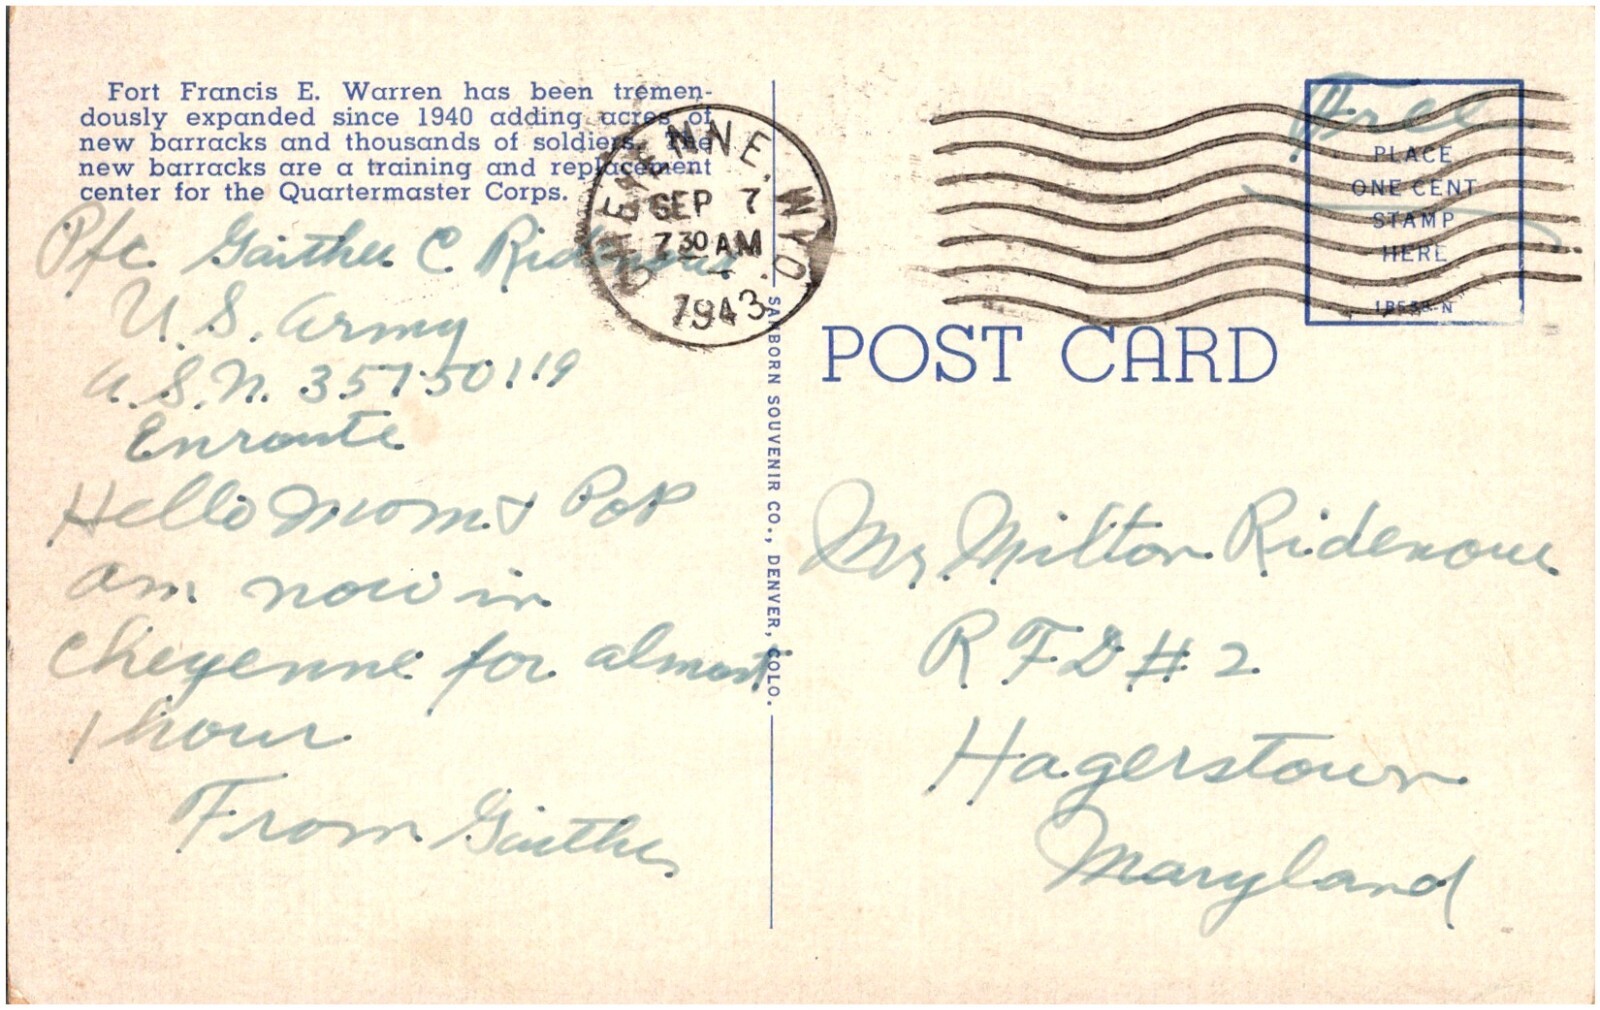 Fort Francis E. Warren has been tremen-
dously expanded since 1940 adding acres of
new barracks and thousands of soldiers. The
new barracks are a training and replacement
center for the Quartermaster Corps.
Pfc. Gaither C Ridenour
U. S. Army
A. S. N. 35750119
Enroute
Hello Mom & Pop
am now in
Cheyenne for almost
1 hour
From Gaither
CHEYENNE, WYO.
SEP 7
7 30 AM
1943
SANBORN SOUVENIR CO., DENVER, COLO.
Free
PLACE
ONE CENT
STAMP
HERE
POST CARD
Mr Milton Ridenour
R F D # 2
Hagerstown
Maryland